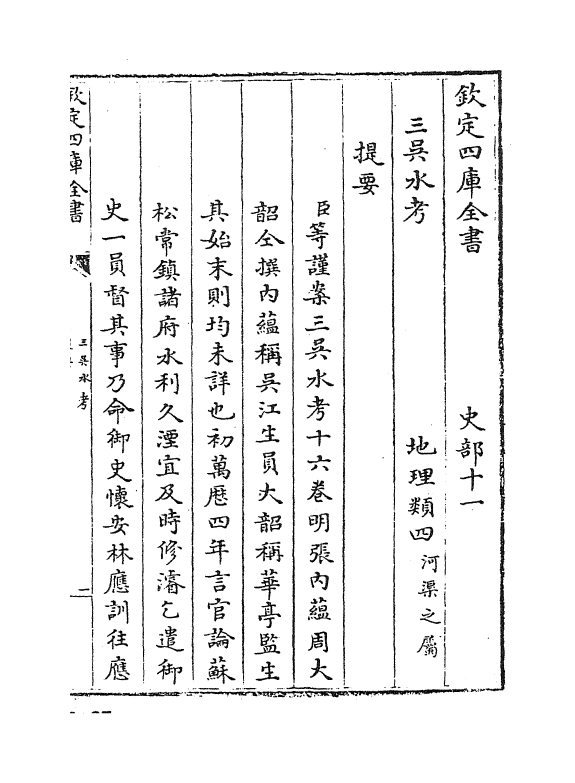 欽定四庫全書　史部十一
三吳水考　地理類四河渠之屬
提要
臣等謹案三吳水考十六卷明張內蘊周大
韶仝撰內蘊稱吳江生員大韶稱華亭監生
其始末則均未詳也初萬厯四年言官論蘇
松常鎮諸府水利久湮宜及時修濬乞遣御
史一員督其事乃命御史懷安林應訓往應
欽定四庫全書
三吳水考